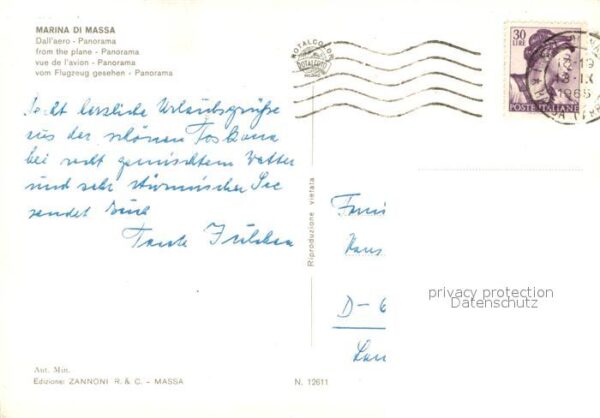 MARINA DI MASSA
Dall'aero - Panorama
from the plane - Panorama
vue de l'avion - Panorama
vom Flugzeug gesehen - Panorama
ROTALCOLOR
ROTALFOTO
MILANO
30
LIRE
POSTE ITALIANE
1965
Recht herzliche Urlaubsgrüße
aus der schönen Toskana
bei recht gemischtem Wetter
und sehr stürmischer See
sendet Euch
Tante Julchen
Riproduzione vietata
Fami
Hans
D-6
Lau
privacy protection
Datenschutz
Aut. Min.
Edizione: ZANNONI R. & C. - MASSA
N. 12611